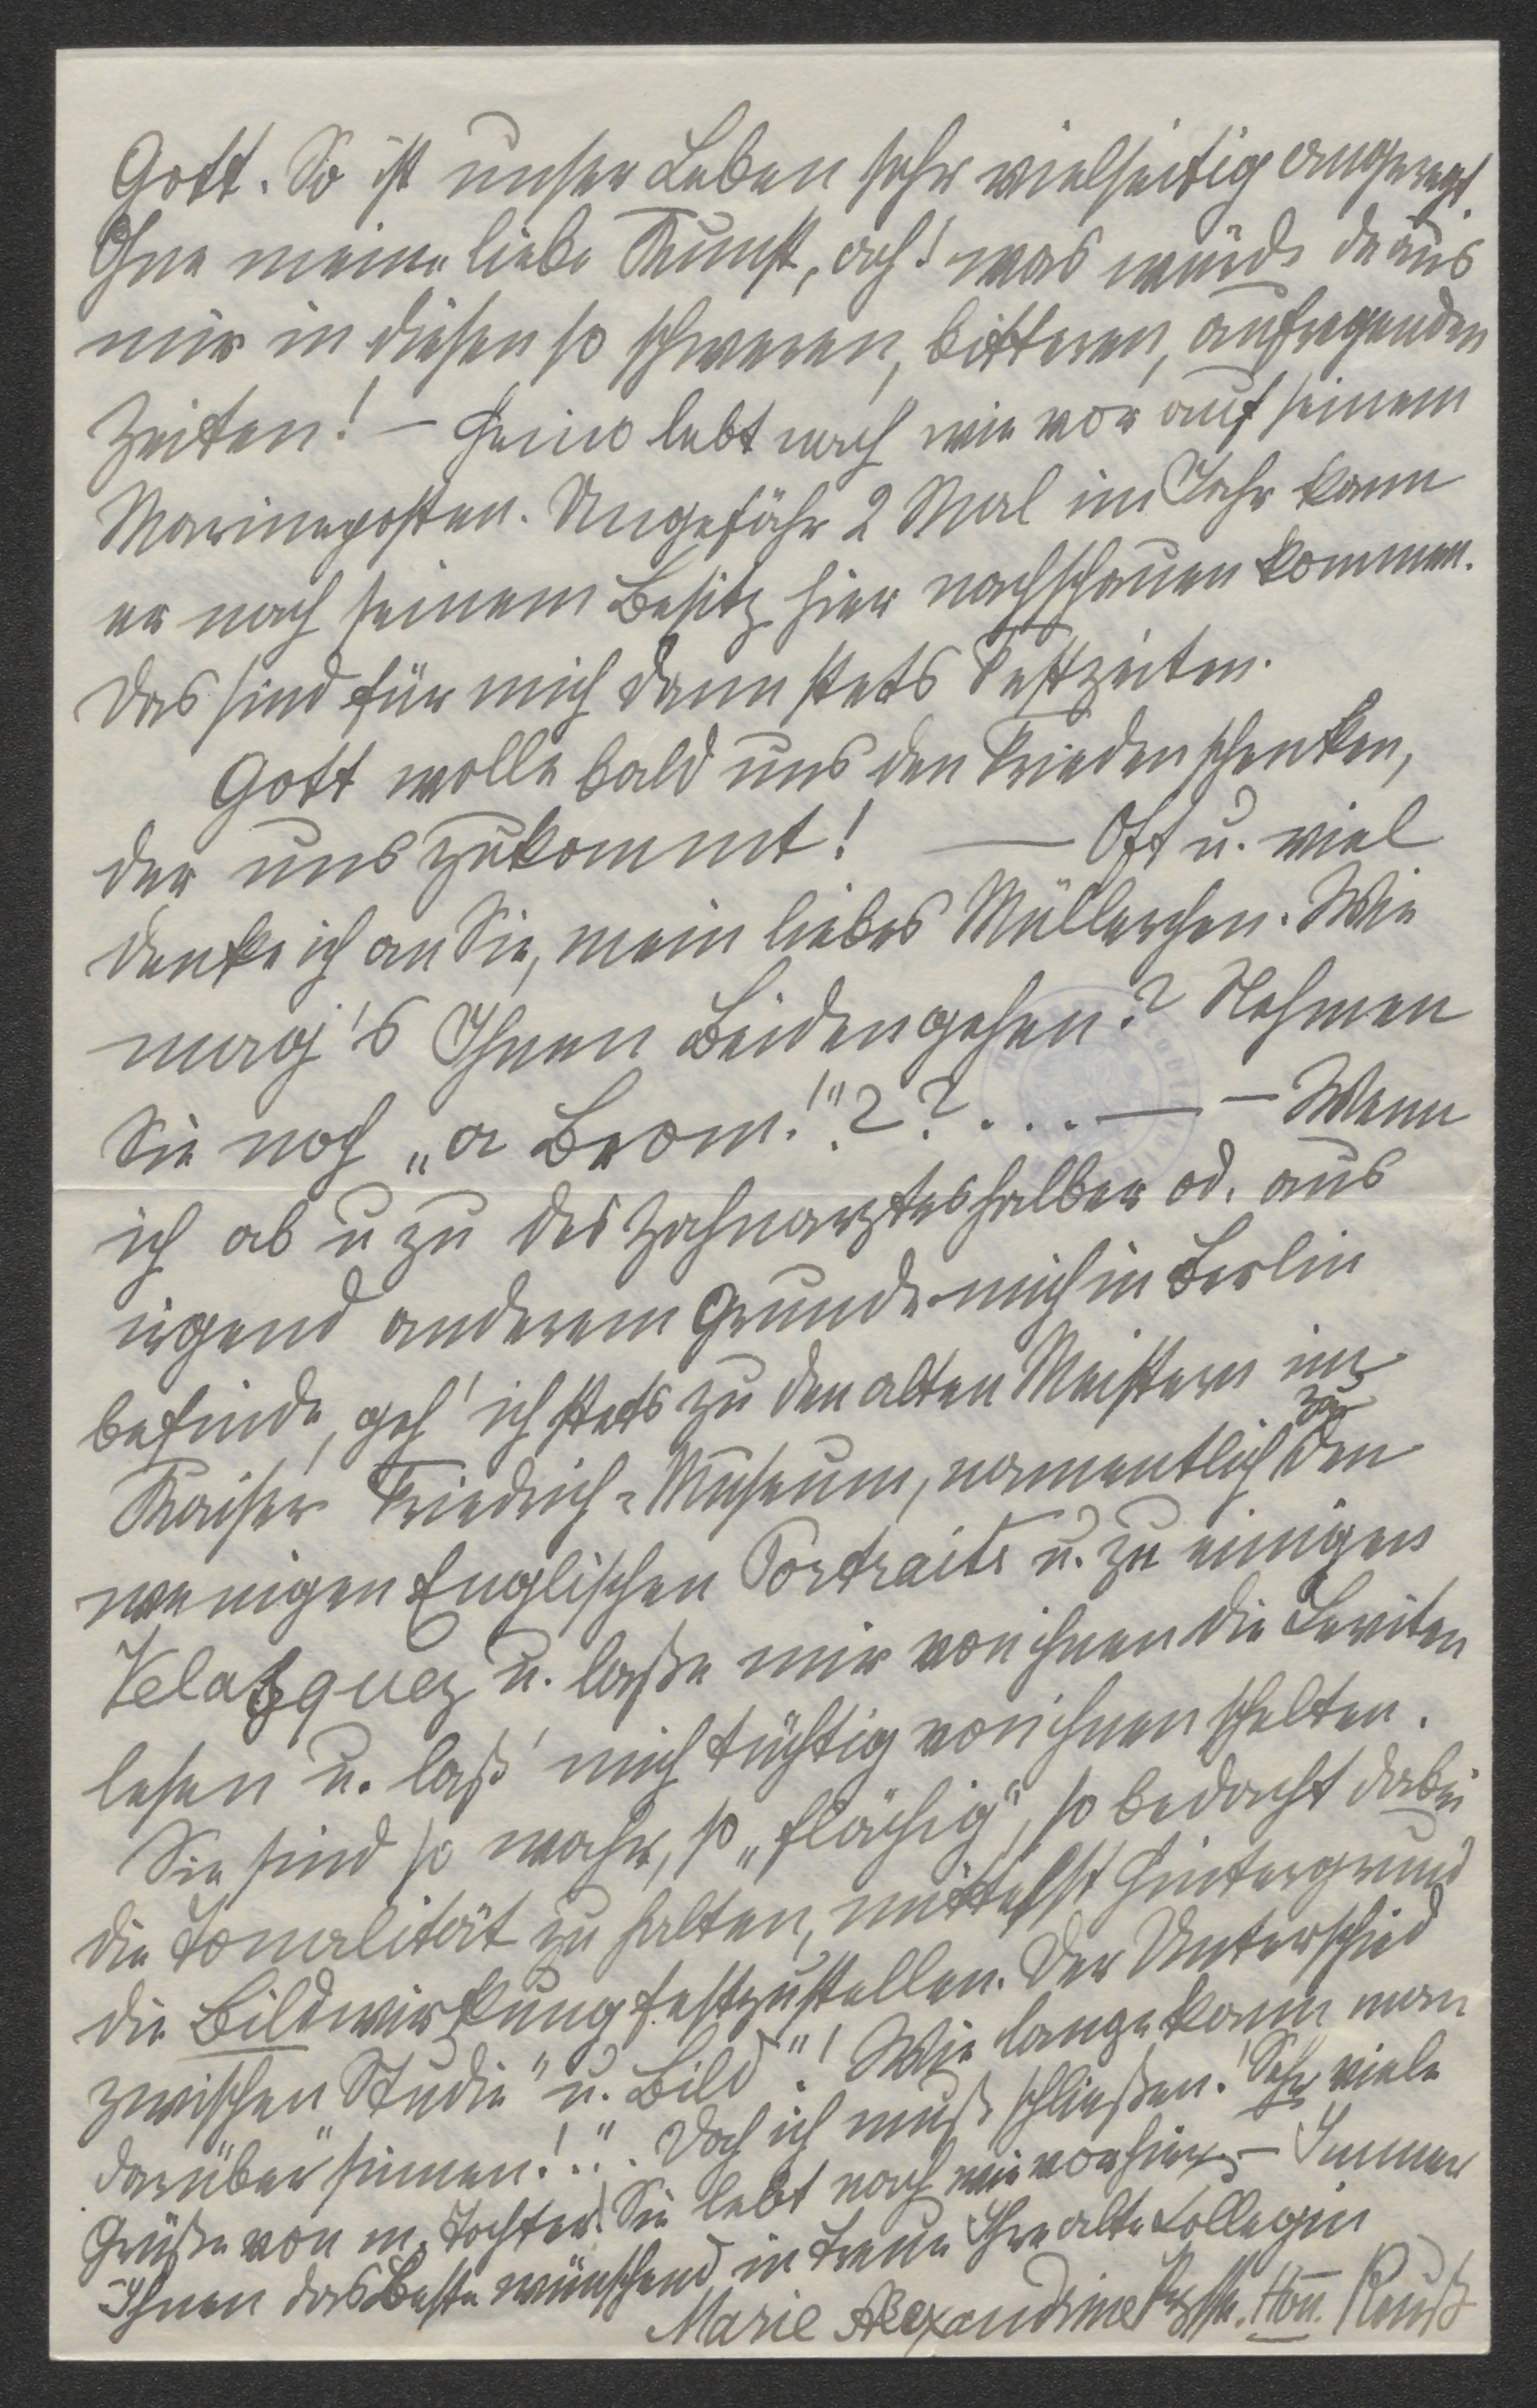 Gott. So ist unser Leben sehr vielseitig angeregt.
Ohne meine liebe Kunst, ach! was würde da aus
mir in diesen so schweren, bitteren, aufregenden
Zeiten! – Heino lebt nach wie vor auf seinem
Marineposten. Ungefähr 2 Mal im Jahr kann
er nach seinem Besitz hier nachschauen kommen.
Das sind für mich dann stets Festzeiten.
Gott wolle bald uns den Frieden schenken,
der uns zukommt! — Oft u. viel
denke ich an Sie, mein liebes Müllerchen. Wie
mag's Ihnen Beiden gehen? Nehmen
Sie noch „a Brom!"?? ... — – Wenn
ich ab u zu des Zahnarztes halber od. aus
irgend anderem Grunde mich in Berlin
befinde, geh' ich stets zu den alten Meistern im
Kaiser Friedrich-Museum, namentlich zu den
wenigen Englischen Portraits u. zu einigen
Velasquez u. laße mir von ihnen die Leviten
lesen u. laß' mich tüchtig von ihnen schelten.
Sie sind so wahr, so „flächig", so bedacht dabei
die Tonalität zu halten, mittelst Hintergrund
die Bildwirkung festzustellen. Der Unterschied
zwischen Studie" u. Bild"! Wie lange kann man
darüber "sinnen!"... Doch ich muß schließen! Sehr viele
Grüße von m. Tochter. Sie lebt nach wie vor hier. – Immer
Ihnen das Beste wünschend in Treue Ihre alte Collegin
Marie Alexandrine Pzssn. Hŏn. Reuß